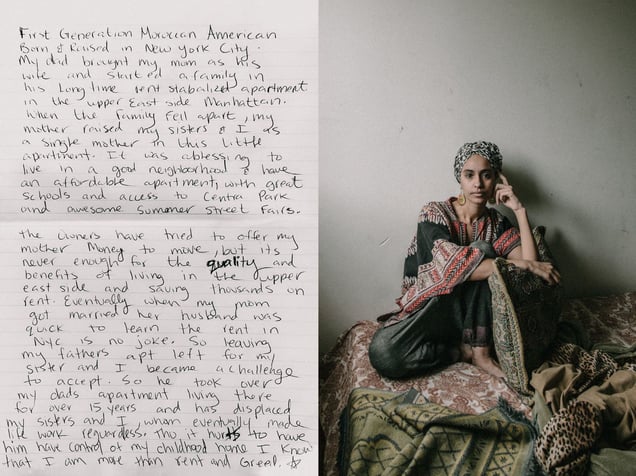 First Generation Moroccan American
Born & Raised in New York City.
My dad brought my mom as his
wife and started a family in
his Long time rent stabalized apartment
in the upper East side Manhattan.
When the family fell apart, my
mother raised my sisters & I as
a single mother in this little
apartment. It was ablessing to
live in a good neighborhood & have
an affordable apartment, with great
schools and access to Centra Park
and awesome Summer Street Fairs.
the owners have tried to offer my
mother Money to move, but its
never enough for the quality and
benefits of living in the upper
east side and saving thousands on
rent. Eventually when my mom
got married her husband was
quick to learn the rent in
NYC is no joke. So leaving
my fathers apt left for my
sister and I became a challenge
to accept. So he took over
my dads apartment living there
for over 15 years and has displaced
my sisters and I whom eventually made
life work regardless. Tho it hurts to have
him have control of my childhood home I know
that I am more than rent and Greed.